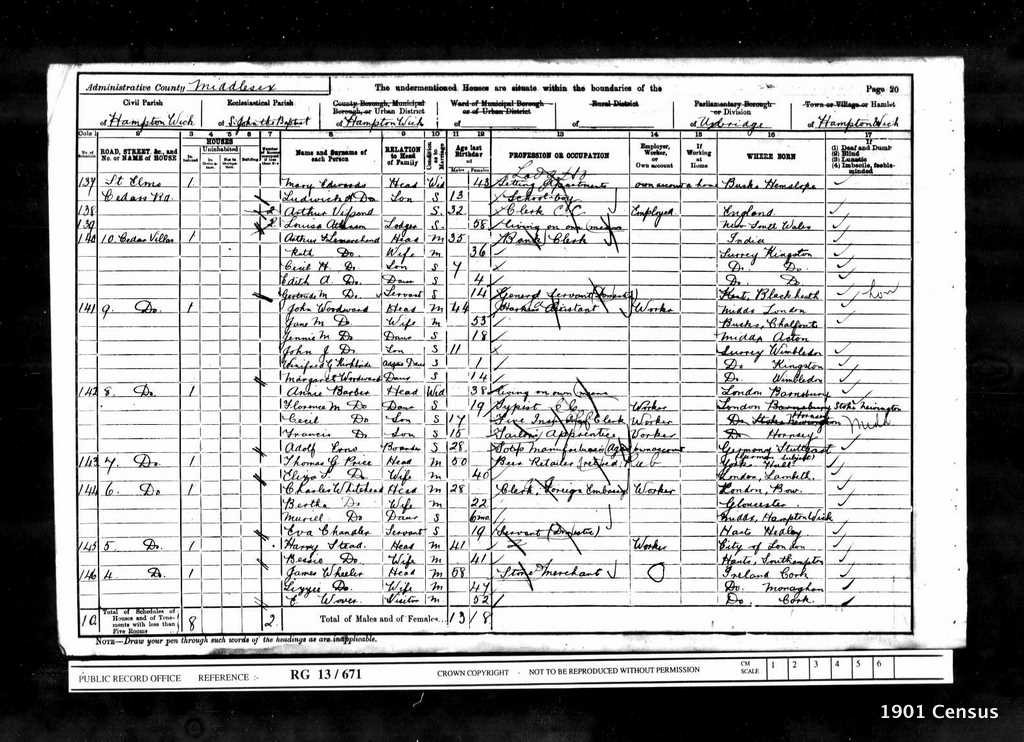 Administrative County Middlesex The undermentioned Houses are situate within the boundaries of the Page 20
Civil Parish Ecclesiastical Parish County Borough, Municipal Borough or Urban District Ward of Municipal Borough or of Urban District Rural District Parliamentary Borough or Division Town or Village or Hamlet
of Hampton Wich of St John the Baptist of Hampton Wich of of of Uxbridge of Hampton Wich
Cols 1 2 3 4 5 6 7 8 9 10 11 12 13 14 15 16 17
No. of Schedule ROAD, STREET, &c., and No. or NAME of HOUSE HOUSES Uninhabited Name and Surname of each Person RELATION to Head of Family Condition as to Marriage Age last Birthday of Males Females PROFESSION OR OCCUPATION Employer, Worker, or Own account If Working at Home WHERE BORN If (1) Deaf and Dumb (2) Blind (3) Lunatic (4) Imbecile, feeble-minded
137 St Elms 1 Mary Edwards Head Wid 43 Letting Apartments own account at home Bucks Hanslope
Cedars Rd. Ludwick Do Son S 13 School boy
138 Arthur Son S. 32 Clerk Employed England
139 Louisa Lodger S. 58 Living on own means New South Wales
140 10. Cedar Villas 1 Arthur Head M 35 Bank Clerk India
Ruth Do. Wife M 36 Surrey Kingston
Cecil H. Do Son S 7 Do. Do.
Edith A. Do. Daur S 4 Do. Do.
Gertrude M Do. Servant S 14 General Servant (Domestic) Kent, Blackheath
141 9. Do. 1 John Woodward Head M 44 Assistant Worker Middx London
Jane M Do. Wife M 53 Bucks, Chalfont
Jennie M Do Daur S 18 Middx Acton
John J Do Son S 11 Surrey Wimbledon
S 1 Do Kingston
Margaret Woodward Daur S 14 Do. Wimbledon
142 8 Do. 1 Annie Barber Head Wid 38 Living on own means London Barnsbury
Florence M Do Daur S 19 Typist Worker London Barnsbury Stoke Newington
Cecil Do Son S 17 Fire Insr Clerk Worker Do Stoke Newington Hornsey
Francis Do Son S 15 Tailors Apprentice Worker Do Hornsey
Adolf Boarder S 28 Soap Manufacturer Germany Stuttgart (German Subject)
143 7. Do. 1 Thomas G Price Head M 50 Beer Retailer (retired) Pub Yorks Hull
Eliza Do. Wife M 40 London, Lambeth.
144 6. Do 1 Charles Whitehead Head M 28 Clerk, Foreign Embassy Worker London, Bow.
Bertha Do Wife M 22 Gloucester
Muriel Do Daur S 6mo Middx, Hampton Wick
Eva Chandler Servant S 19 Servant (Domestic) Hants Hedley
145 5. Do. 1 Harry Stead. Head M 41 Worker City of London
Bessie Do. Wife M 41 Hants, Southampton
146 4. Do. 1 James Wheeler Head M 58 Stone Merchant Ireland Cork
Lizzie Do. Wife M 47 Do. Monaghan
E Visitor M 52 Do. Cork.
10 Total of Schedules of Houses and of Tenements with less than Five Rooms 8 2 Total of Males and of Females... 13 18
NOTE—Draw your pen through such words of the headings as are inapplicable.
PUBLIC RECORD OFFICE REFERENCE :- RG 13/671 CROWN COPYRIGHT - NOT TO BE REPRODUCED WITHOUT PERMISSION CM SCALE 1 2 3 4 5 6
1901 Census